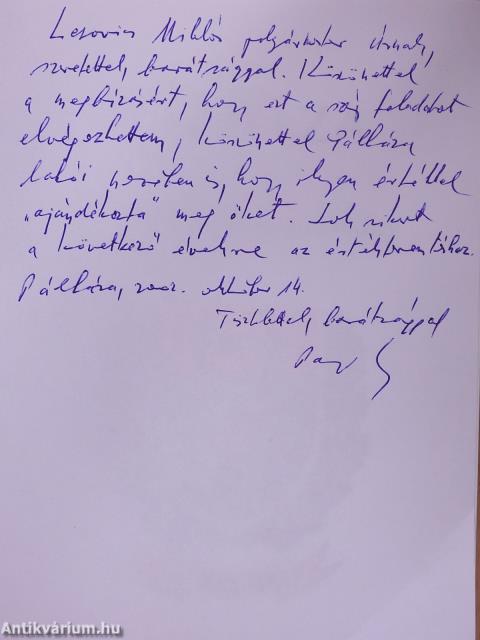 Lesovics Miklós polgármester úrnak,
szeretettel, barátsággal. Köszönettel
a megbízásért, hogy ezt a szép feladatot
elvégezhettem, köszönettel Pálháza
lakói nevében is, hogy ilyen értékkel
„ajándékozta" meg őket. Sok sikert
a következő évekre az értékteremtéshez.
Pálháza, 2002. október 14.
Tisztelettel, barátsággal
Antikvárium.hu